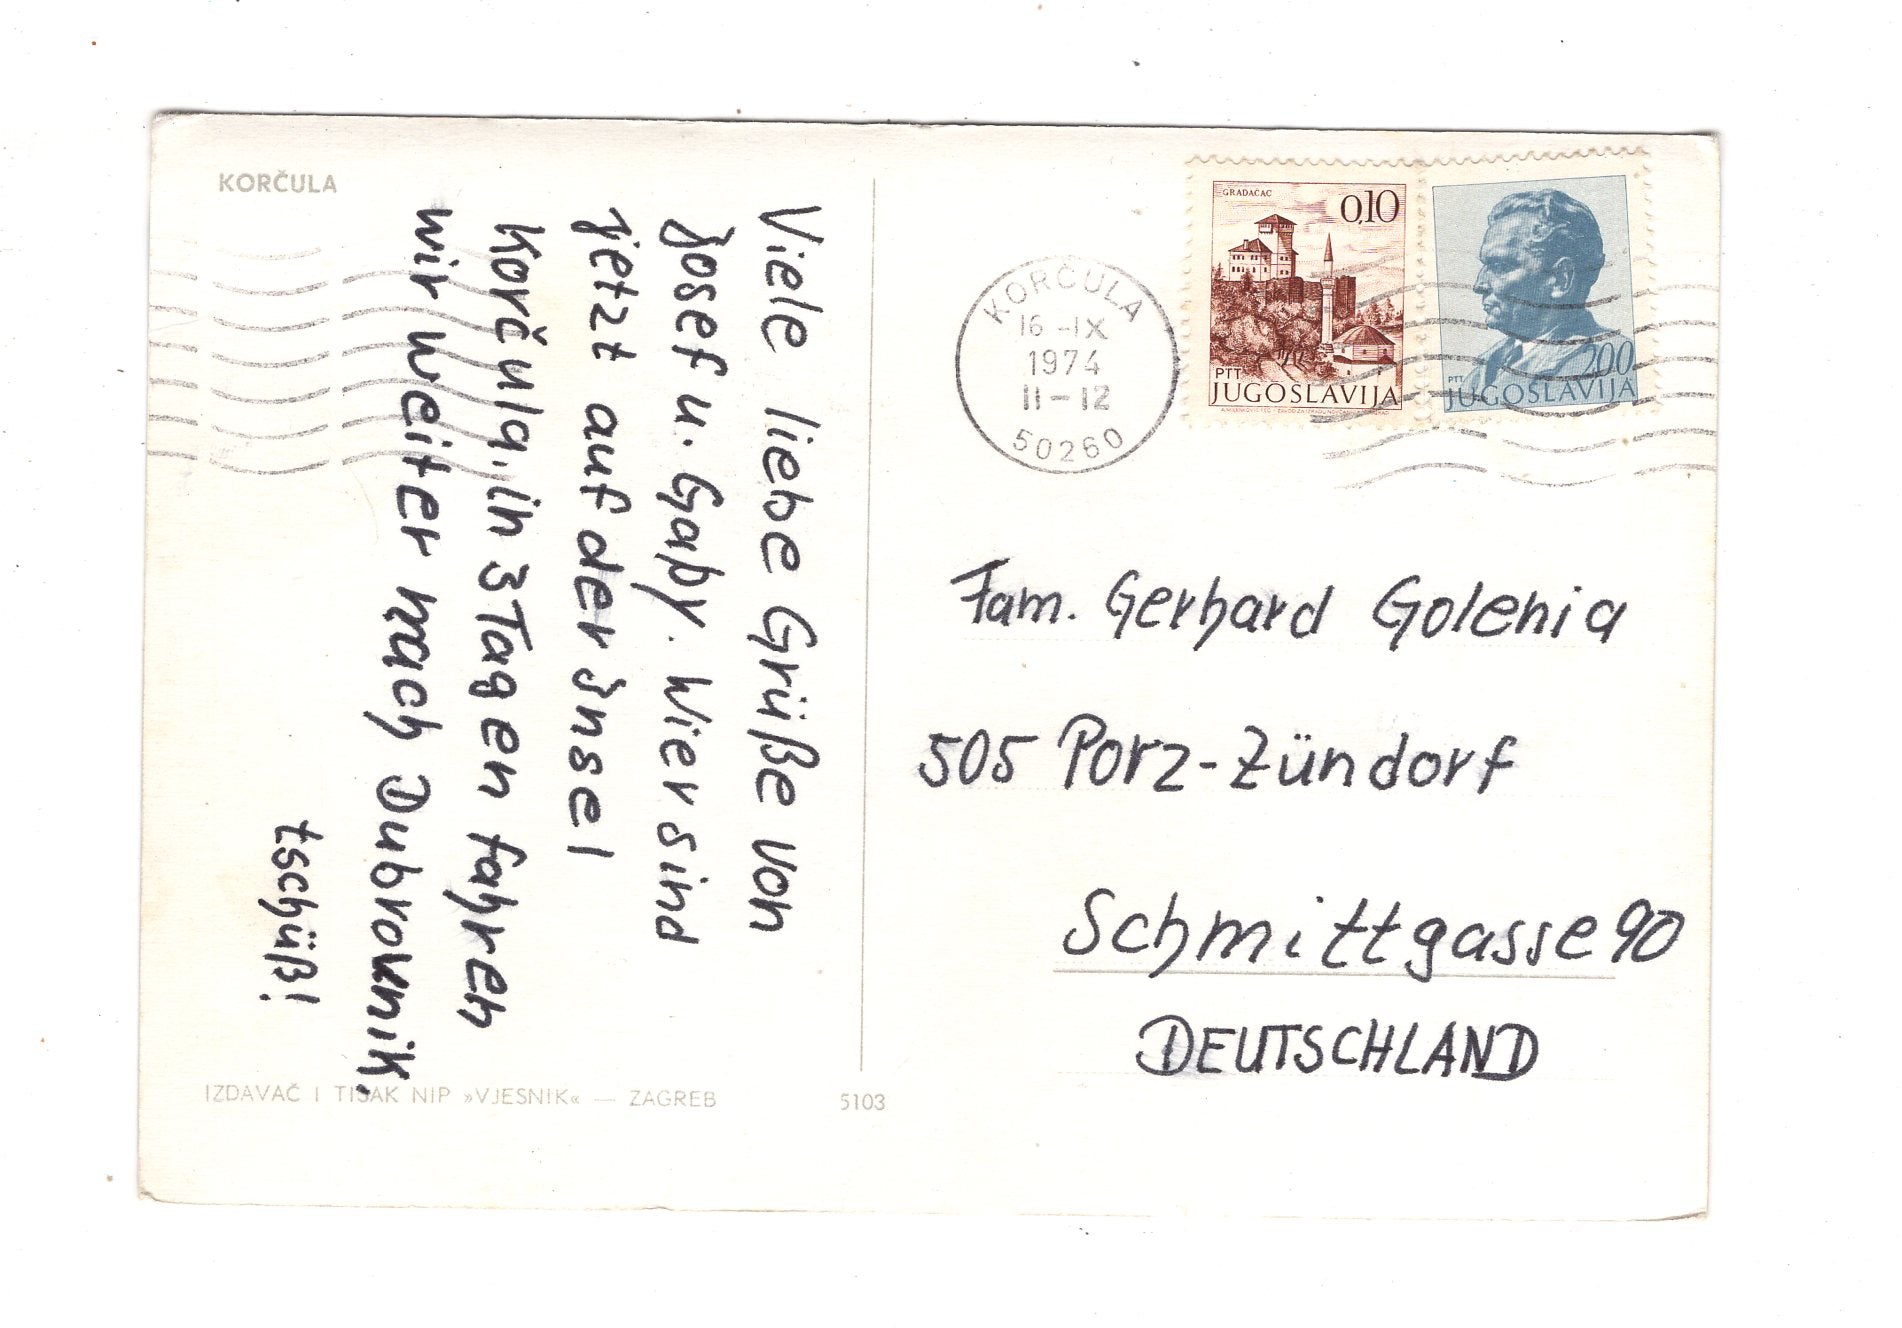 KORČULA
Viele liebe Grüße von
Josef u. Gaby. Wier sind
jetzt auf der Insel
Korčula. in 3 Tagen fahren
wir weiter nach Dubrovnik.
tschüß!
IZDAVAČ I TISAK NIP »VJESNIK« — ZAGREB
5103
KORČULA
16 -IX
1974
11-12
50260
GRADAČAC
0,10
PTT
JUGOSLAVIJA
2,00
PTT
JUGOSLAVIJA
Fam. Gerhard Golenia
505 Porz-Zündorf
Schmittgasse 90
DEUTSCHLAND